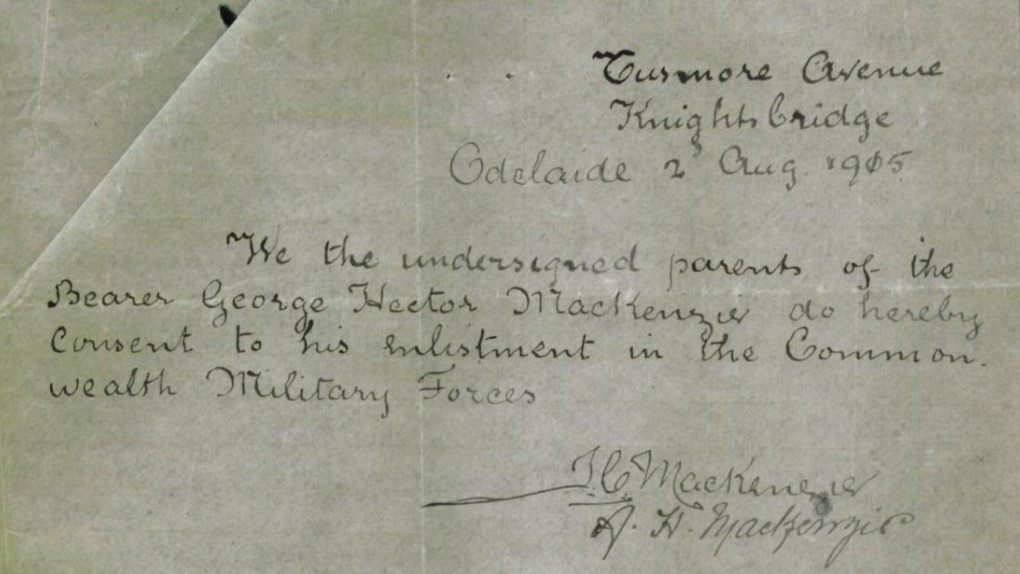 Tusmore Avenue
Knightsbridge
Adelaide 2 Aug 1915
We the undersigned parents of the
Bearer George Hector MacKenzie do hereby
Consent to his enlistment in the Common.
wealth Military Forces
MacKenzie
A. H. MacKenzie